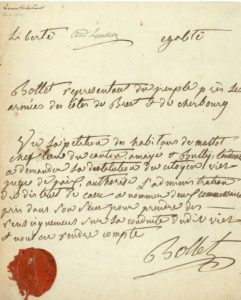 Liberté égalité
Bollet représentant du peuple près les
armées des côtes de Brest et de cherbourg
Vu la pétition des habitans de maltot
chef lieu du canton
a demander la destitution du citoyen viet
juge de paix, authorise l'administration
du district de caen a nommer deux commissaires
pris dans son sein pour prendre des
renseignemens sur la conduite dudit viet
et nous en rendre compte
Bollet